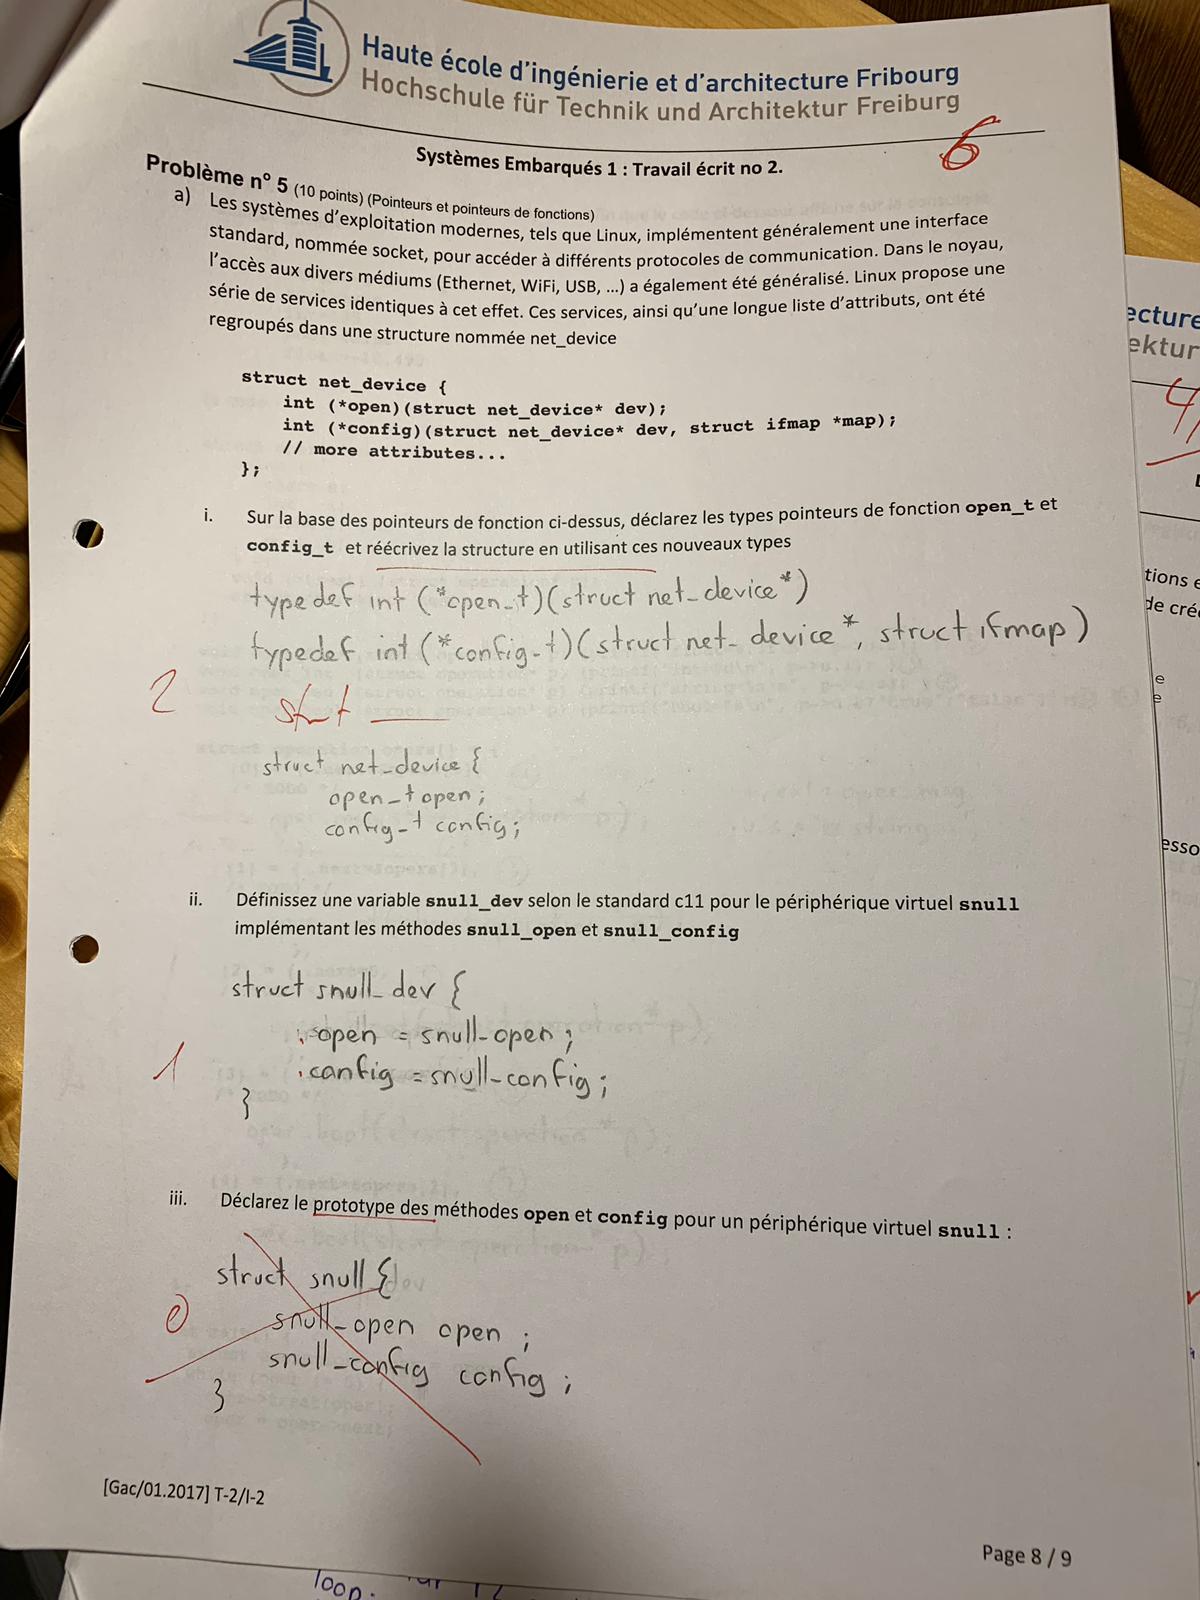 Haute école d'ingénierie et d'architecture Fribourg
Hochschule für Technik und Architektur Freiburg
6
Systèmes Embarqués 1 : Travail écrit no 2.
Problème n° 5 (10 points) (Pointeurs et pointeurs de fonctions)
a) Les systèmes d'exploitation modernes, tels que Linux, implémentent généralement une interface
standard, nommée socket, pour accéder à différents protocoles de communication. Dans le noyau,
l'accès aux divers médiums (Ethernet, WiFi, USB, ...) a également été généralisé. Linux propose une
série de services identiques à cet effet. Ces services, ainsi qu'une longue liste d'attributs, ont été
regroupés dans une structure nommée net_device
struct net_device {
int (*open)(struct net_device* dev);
int (*config)(struct net_device* dev, struct ifmap *map);
// more attributes...
};
i. Sur la base des pointeurs de fonction ci-dessus, déclarez les types pointeurs de fonction open_t et
config_t et réécrivez la structure en utilisant ces nouveaux types
typedef int (*open_t)(struct net_device*)
typedef int (*config_t)(struct net_device*, struct ifmap)
2
struct net_device {
open_t open;
config_t config;
ii. Définissez une variable snull_dev selon le standard c11 pour le périphérique virtuel snull
implémentant les méthodes snull_open et snull_config
struct snull_dev {
.open = snull_open;
1
.config = snull_config;
}
iii. Déclarez le prototype des méthodes open et config pour un périphérique virtuel snull :
struct snull {
0
snull_open open ;
snull_config config ;
}
[Gac/01.2017] T-2/I-2
Page 8 / 9
ecture
ektur
4
tions e
de cré
e
e
esso
loop.